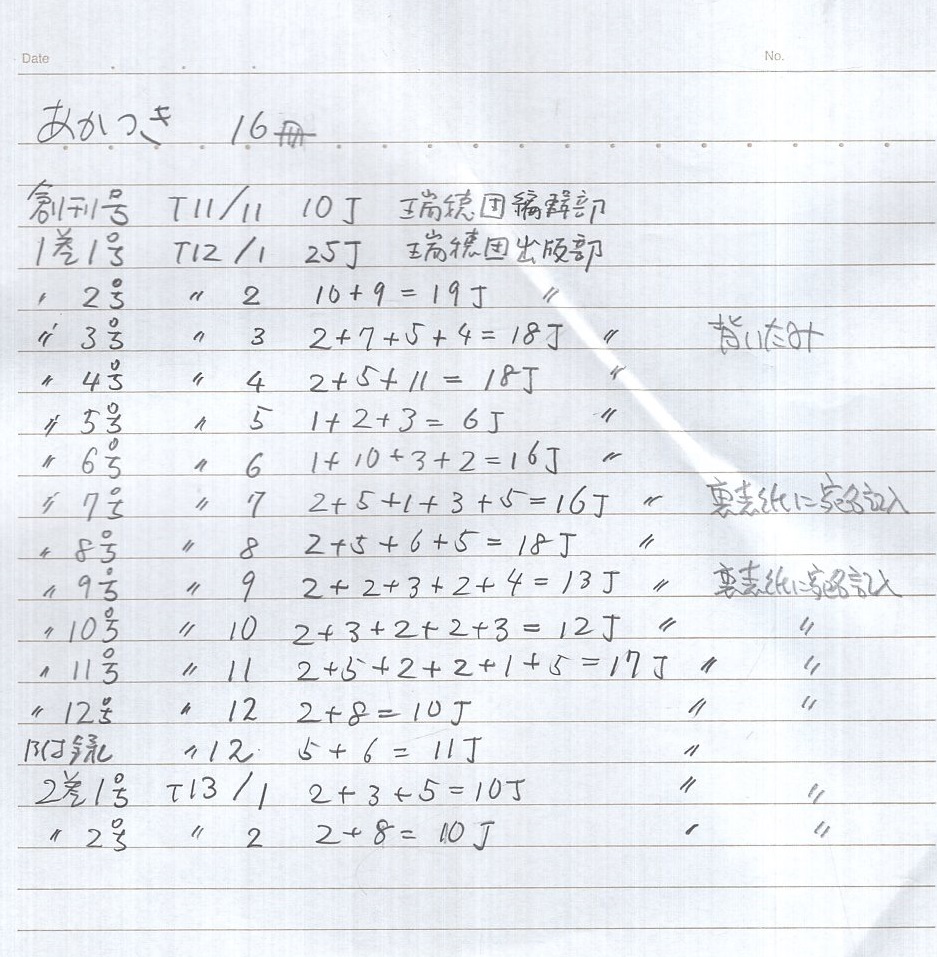 Date No.
あかつき 16冊
創刊号 T11/11 10J 瑞穂団編輯部
1巻1号 T12/1 25J 瑞穂団出版部
〃 2号 〃 2 10+9=19J 〃
〃 3号 〃 3 2+7+5+4=18J 〃 背いたみ
〃 4号 〃 4 2+5+11=18J 〃
〃 5号 〃 5 1+2+3=6J 〃
〃 6号 〃 6 1+10+3+2=16J 〃
〃 7号 〃 7 2+5+1+3+5=16J 〃 裏表紙に宛名記入
〃 8号 〃 8 2+5+6+5=18J 〃
〃 9号 〃 9 2+2+3+2+4=13J 〃 裏表紙に宛名記入
〃 10号 〃 10 2+3+2+2+3=12J 〃 〃
〃 11号 〃 11 2+5+2+2+1+5=17J 〃 〃
〃 12号 〃 12 2+8=10J 〃 〃
附録 〃 12 5+6=11J 〃
2巻1号 T13/1 2+3+5=10J 〃 〃
〃 2号 〃 2 2+8=10J 〃 〃